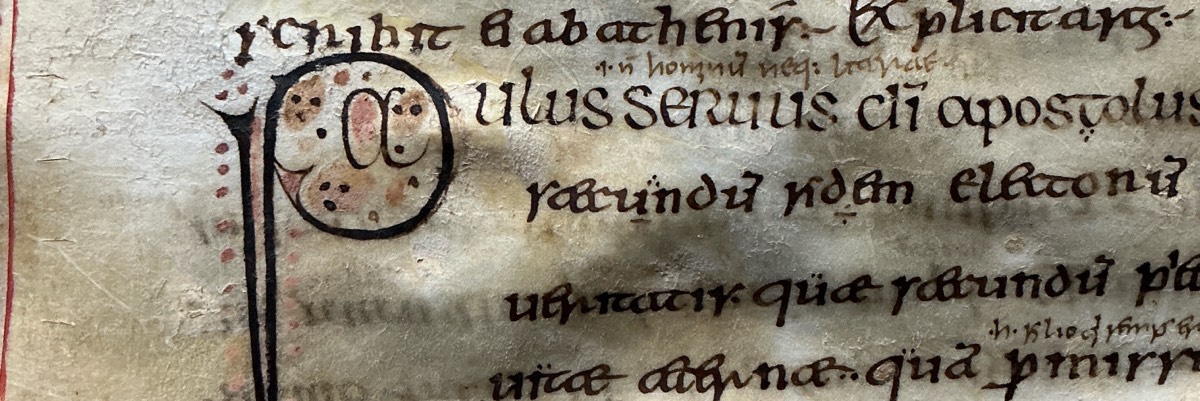 scribit ei ab athenis:~ Explicit arg:~
.i. n̄ hominū neq:
Paulus seruus dī apostolus
secundū fidem electorū
ueritatis. quae secundū
uitae aeternae: quā